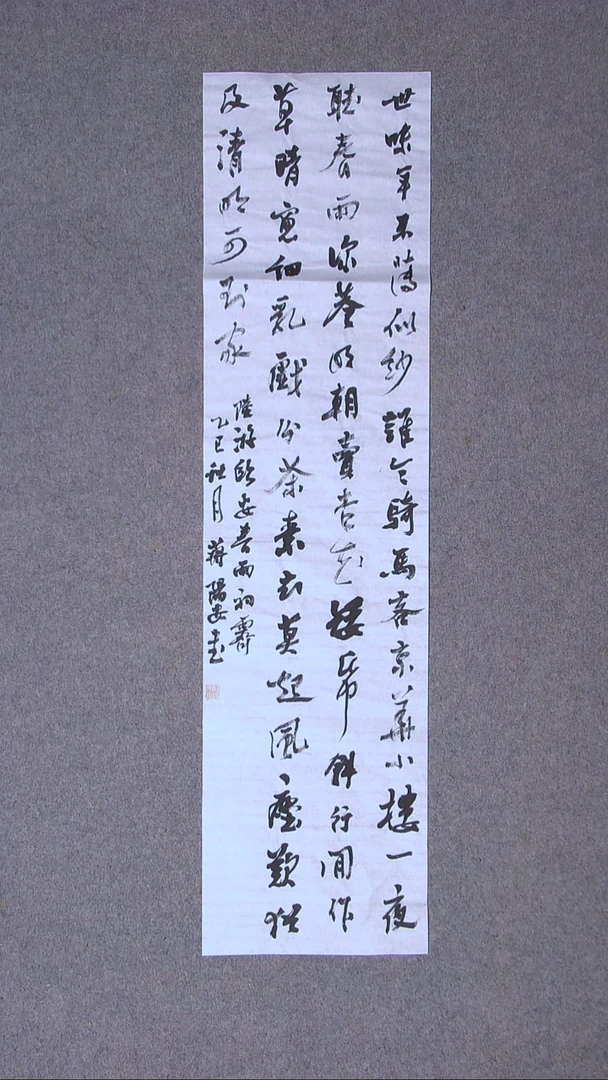 世味年来薄似紗誰令騎馬客京華小樓一夜
聽春雨深巷明朝賣杏花矮帋斜行閒作
草晴窓細乳戲分茶素衣莫起風塵歎猶
及清明可到家
陸游臨安春雨初霽
乙巳秋月蔣陽安書